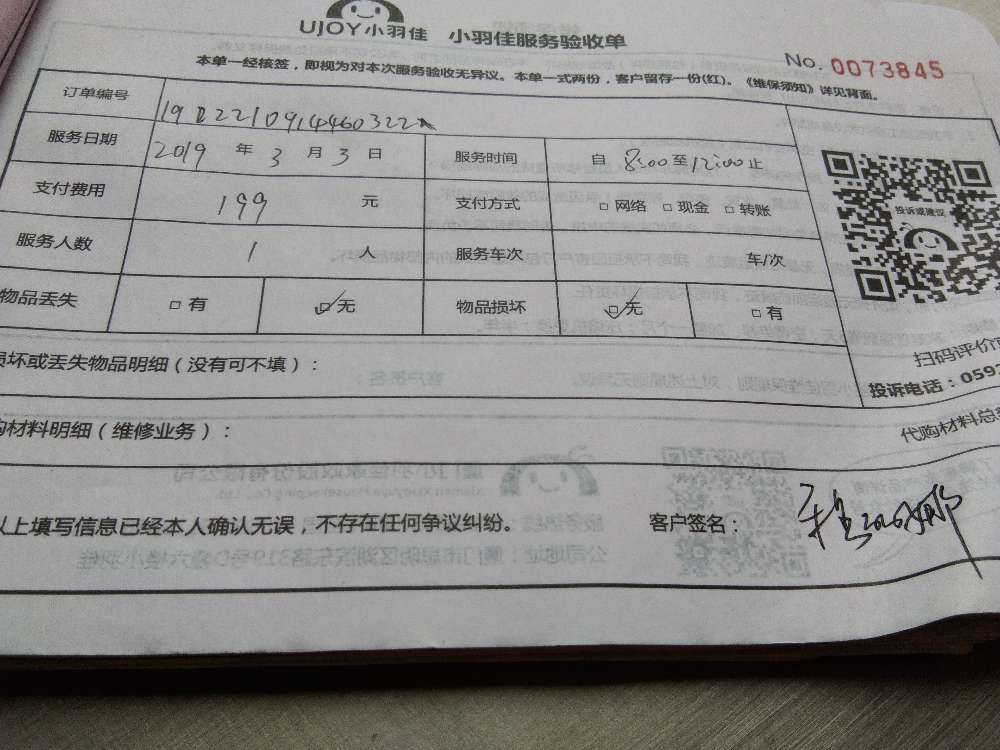 UJOY小羽佳 小羽佳服务验收单
No. 0073845
本单一经核签，即视为对本次服务验收无异议。本单一式两份，客户留存一份(红)。《维保须知》详见背面。
订单编号
服务日期 2019 年 3 月 3 日 服务时间 自 8:00 至 12:00 止
支付费用 199 元 支付方式 □ 网络 □ 现金 □ 转账
投诉或建议
服务人数 1 人 服务车次 车/次
物品丢失 □ 有 ☑ 无 物品损坏 ☑ 无 □ 有
坏或丢失物品明细（没有可不填）：
扫码评价
投诉电话：059
材料明细（维修业务）：
代购材料总
以上填写信息已经本人确认无误，不存在任何争议纠纷。 客户签名：